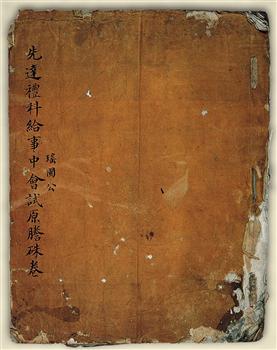 瑤圃公
先達禮科給事中會試原謄硃卷